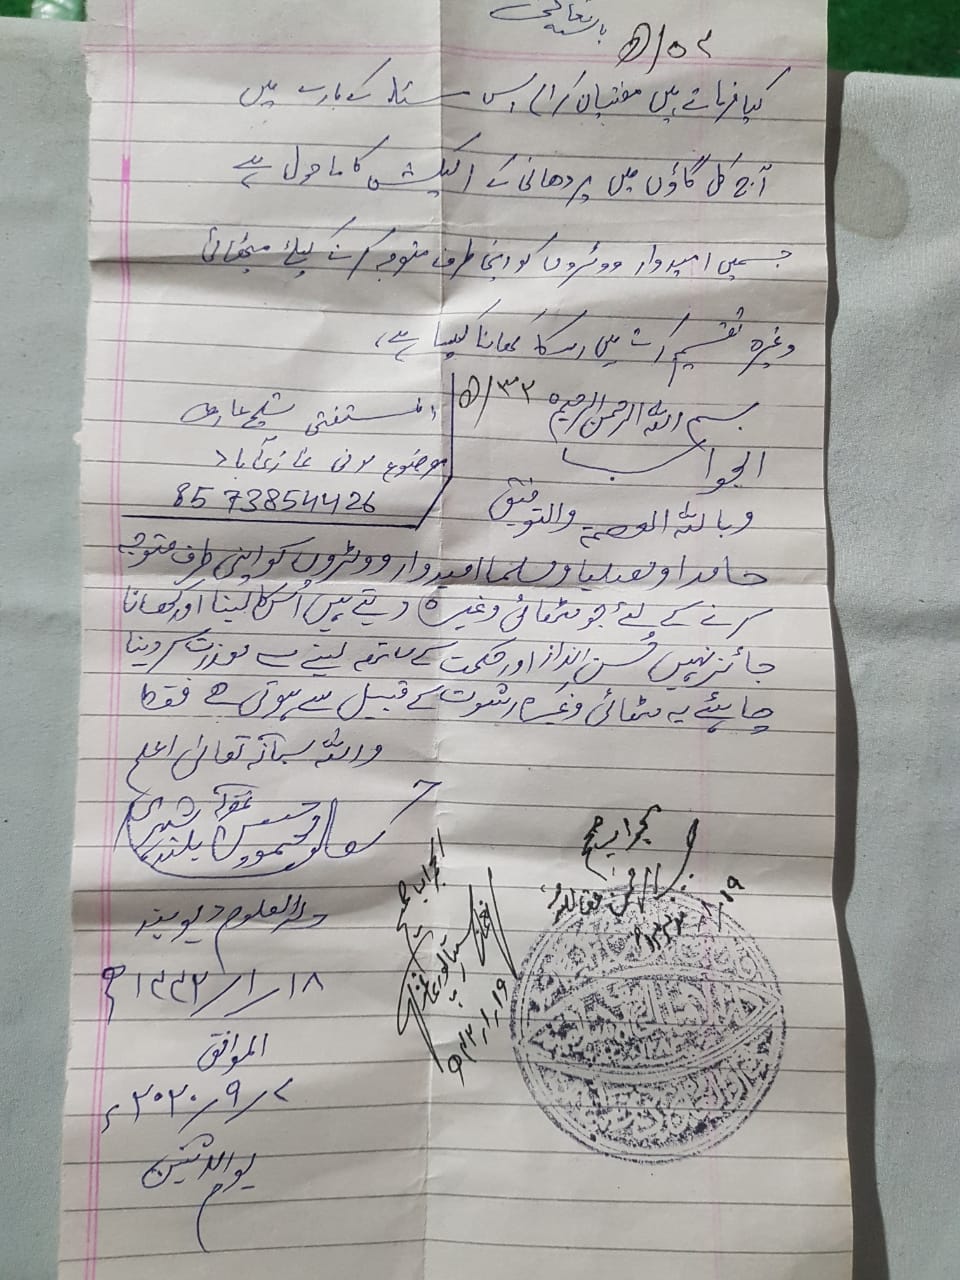 باسمہ تعالیٰ
کیا فرماتے ہیں مفتیان کرام اس مسئلہ کے بارے میں
آج کل گاؤں میں پردھانی کے الیکشن کا ماحول ہے
جسمیں امیدوار ووٹروں کو اپنی طرف متوجہ کرنے کیلئے مٹھائی
وغیرہ تقسیم کرتے ہیں اسکا کھانا کیسا ہے،
المستفتی
موضوع لونی غازی آباد
8573854426
بسم اللہ الرحمن الرحیم
الجواب
وباللہ العصمۃ والتوفیق
حامدا ومصلیا ومسلما امیدوار ووٹروں کو اپنی طرف متوجہ
کرنے کے لئے جو مٹھائی وغیرہ دیتے ہیں اُس کا لینا اور کھانا
جائز نہیں حُسن انداز اور حکمت کے ساتھ لینے سے معذرت کردینا
چاہئے یہ مٹھائی وغیرہ رشوت کے قبیل سے ہوتی ہے فقط
واللہ سبحانہ تعالیٰ اعلم
محمود حسن بلند شہری غفرلہ
دارالعلوم دیوبند
۱۸/۱/۱۴۴۲ھ
الموافق
۷/۹/۲۰۲۰ء
یوم الاثنین
الجواب صحیح
الجواب صحیح